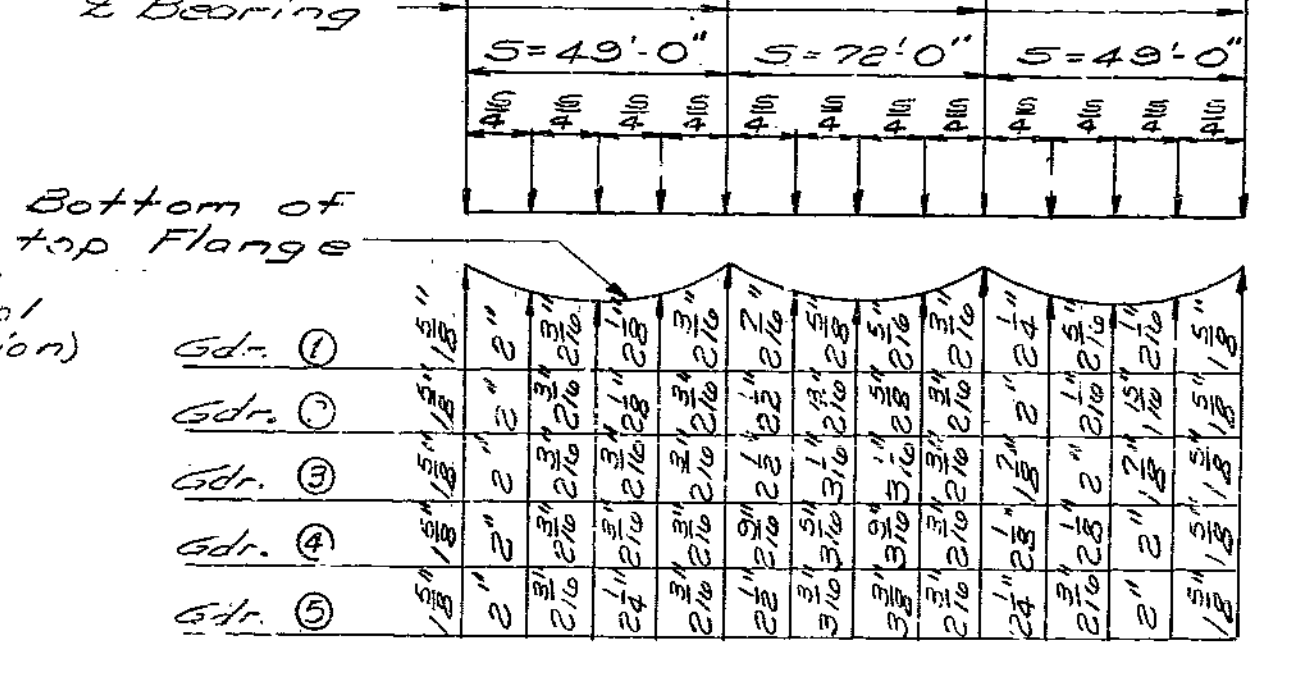 ℄ Bearing
S=49'-0" S=72'-0" S=49'-0"
S/4 S/4 S/4 S/4 S/4 S/4 S/4 S/4 S/4 S/4 S/4 S/4
Bottom of
top Flange
Gdr. ① 1 5/8" 2" 2 3/16" 2 1/8" 2 3/16" 2 7/16" 2 5/8" 2 5/16" 2 3/16" 2 1/4" 2 5/16" 2 1/16" 1 5/8"
Gdr. 1 5/8" 2" 2 3/16" 2 1/8" 2 3/16" 2 1/2" 2 13/16" 2 5/8" 2 3/16" 2" 2 1/16" 1 15/16" 1 5/8"
Gdr. ③ 1 5/8" 2" 2 3/16" 2 3/16" 2 3/16" 2 1/2" 3 1/16" 3 1/16" 2 3/16" 1 7/8" 2" 1 7/8" 1 5/8"
Gdr. ④ 1 5/8" 2" 2 3/16" 2 3/16" 2 3/16" 2 9/16" 3 5/16" 3 9/16" 2 3/16" 2 1/8" 2 1/8" 2" 1 5/8"
Gdr. ⑤ 1 5/8" 2" 2 3/16" 2 1/4" 2 3/16" 2 1/2" 3 3/16" 3 3/8" 2 3/16" 2 1/4" 2 3/16" 2" 1 5/8"